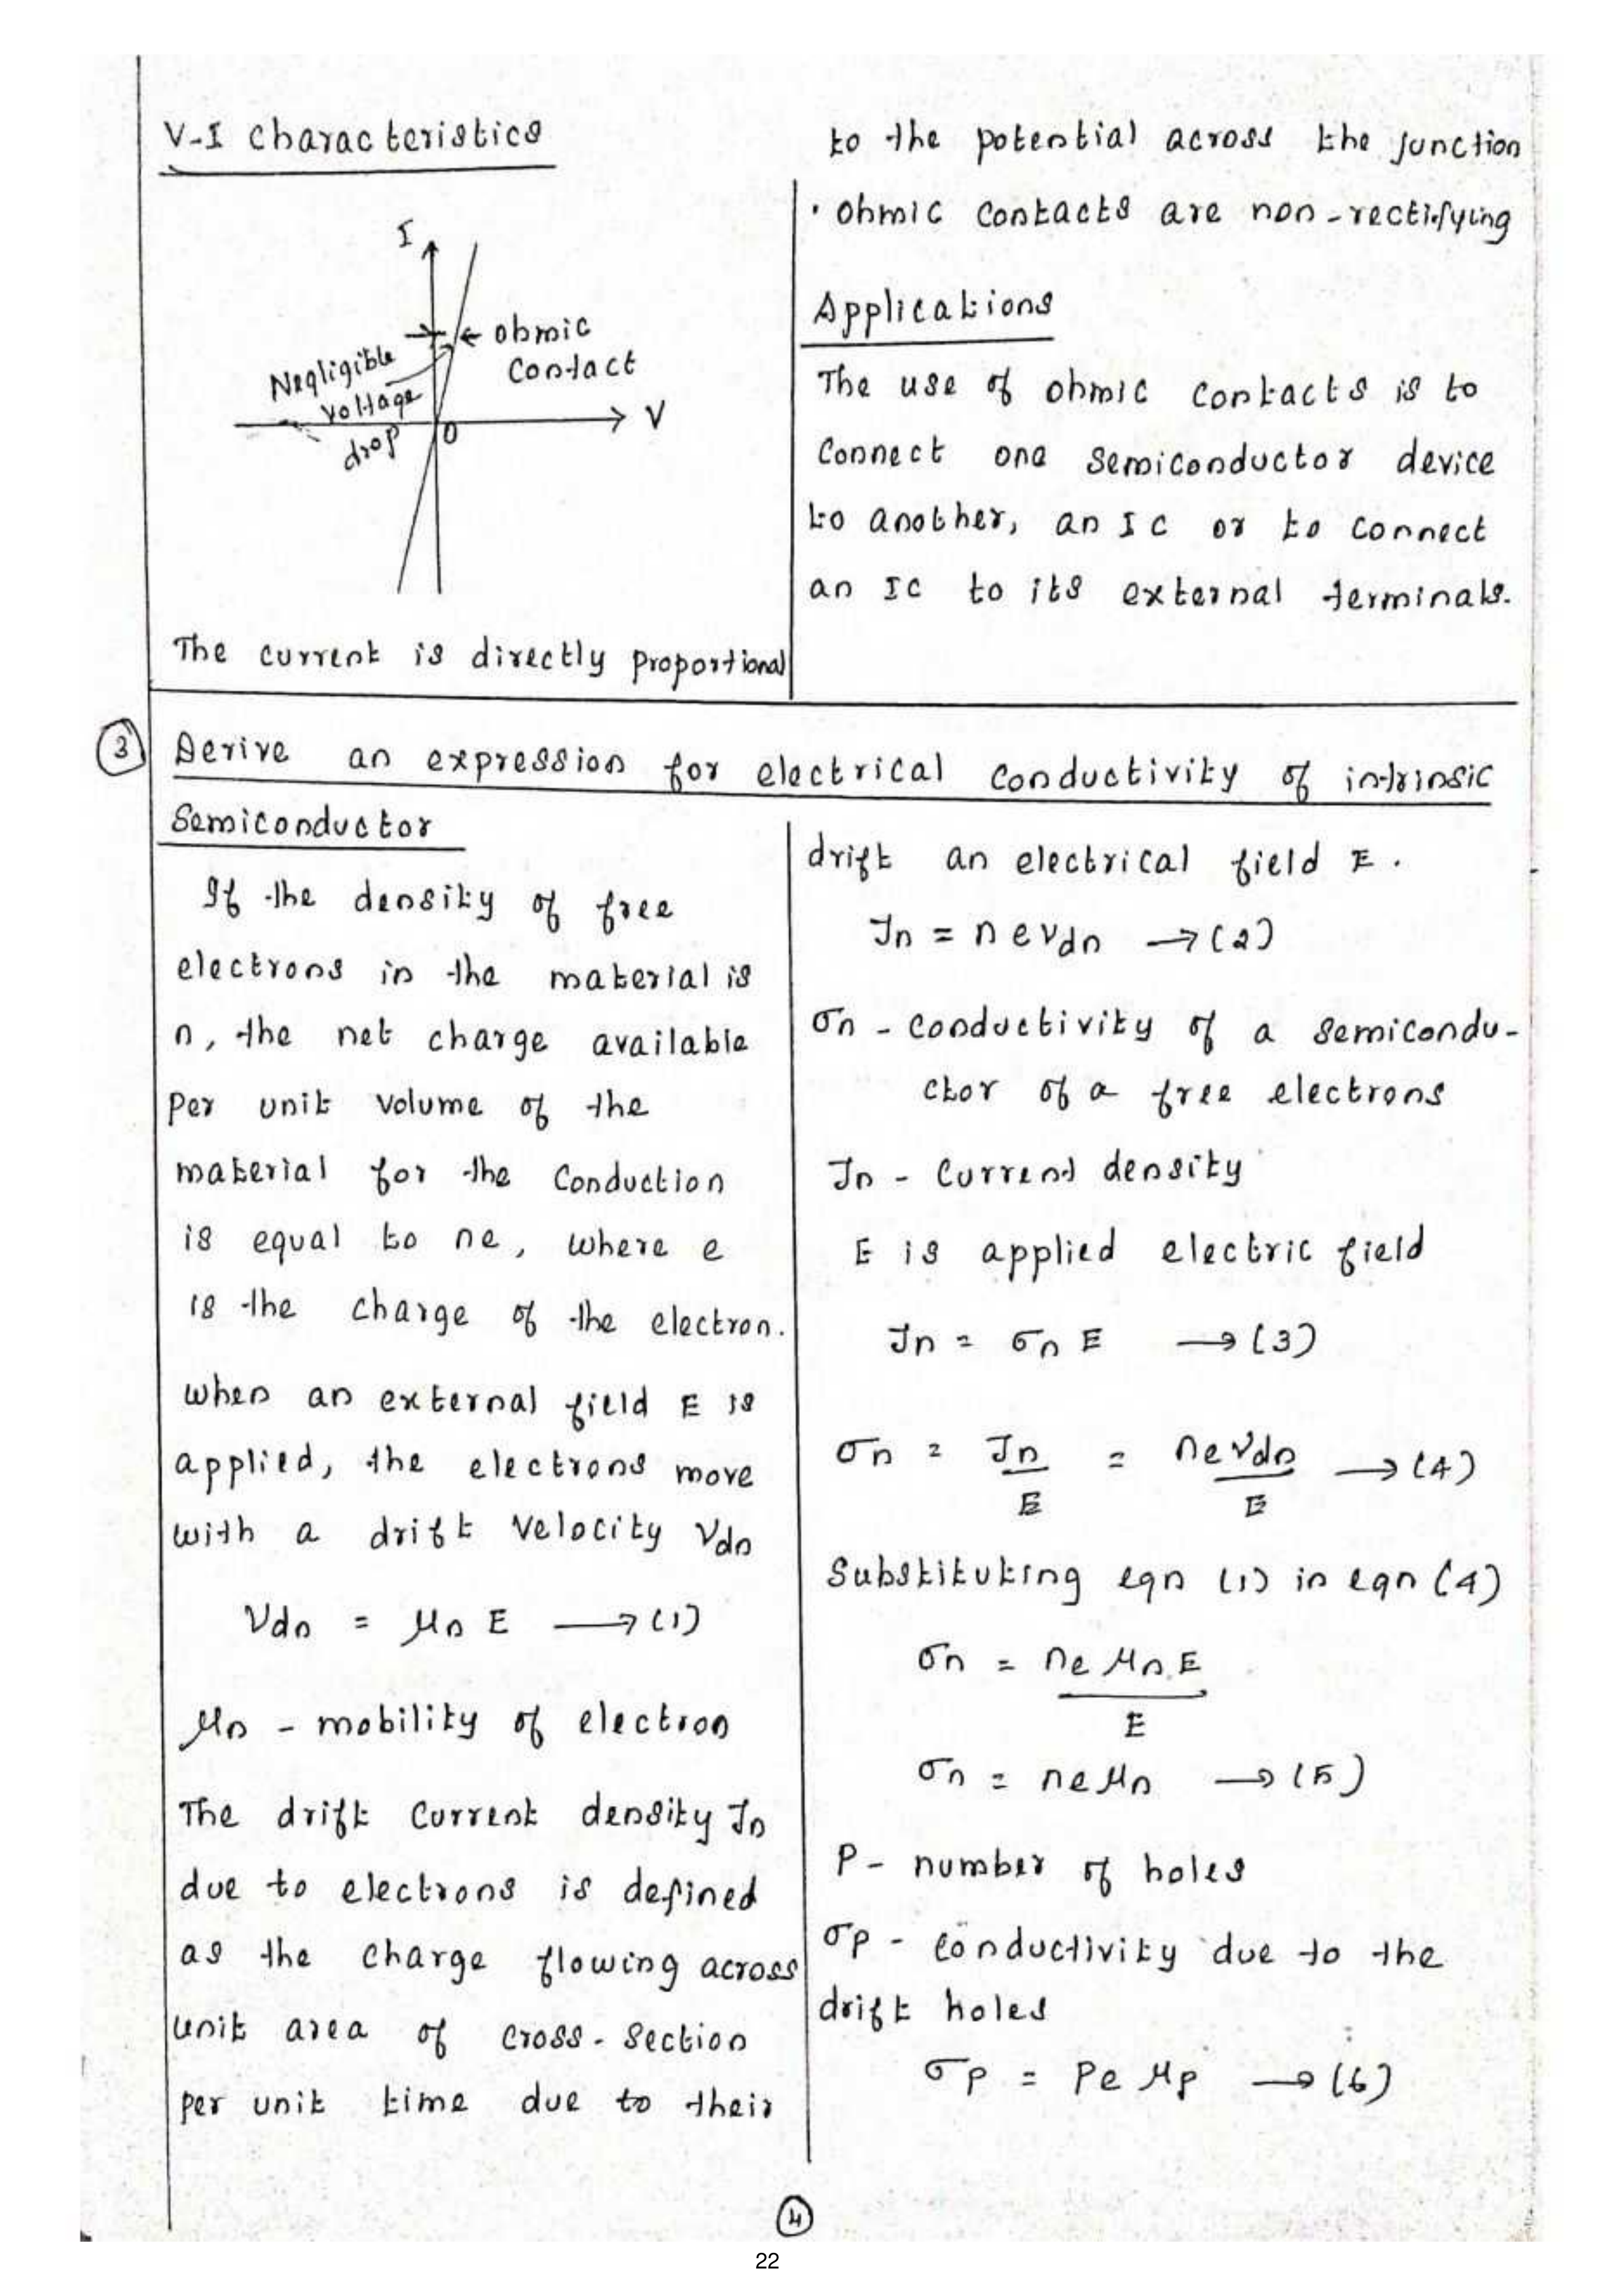 V-I Characteristics
I
Ohmic
Contact
Negligible
voltage
drop
O
V
The current is directly proportional
to the potential across the junction
• Ohmic Contacts are non-rectifying
Applications
The use of ohmic contacts is to
Connect one semiconductor device
to another, an IC or to connect
an IC to its external terminals.
3 Derive an expression for electrical conductivity of intrinsic
Semiconductor
If the density of free
electrons in the material is
n, the net charge available
Per unit volume of the
material for the Conduction
is equal to ne, where e
is the charge of the electron.
when an external field E is
applied, the electrons move
with a drift velocity Vdn
Vdn = μn E → (1)
μn - mobility of electron
The drift Current density Jn
due to electrons is defined
as the charge flowing across
unit area of cross-section
per unit time due to their
drift an electrical field E.
Jn = n e vdn → (2)
σn - conductivity of a semicondu-
ctor of a free electrons
Jn - Current density
E is applied electric field
Jn = σn E → (3)
σn = Jn/E = nevdn/E → (4)
Substituting eqn (1) in eqn (4)
σn = ne μn E
E
σn = neμn → (5)
P - number of holes
σp - conductivity due to the
drift holes
σp = Pe μp → (6)
4
22